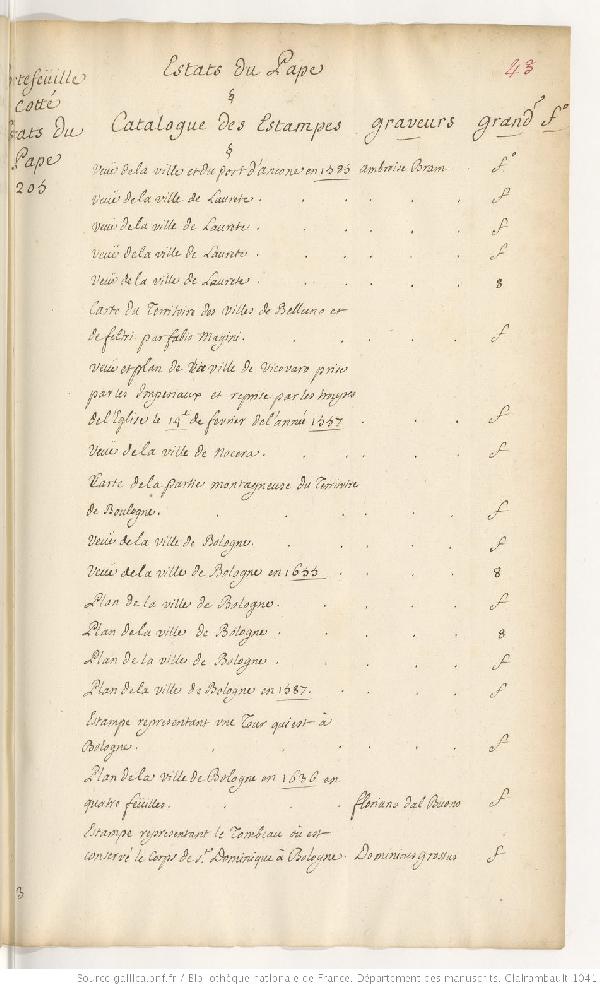 Estats du Pape
43
§
Catalogue des Estampes graveurs grand.r f.o
§
cotté
Pape
205
Veüe de la ville et du port d'ancone en 1585 ambroise Bram f.o
Veüe de la ville de Laurete . . . . . f
Veüe de la ville de Laurete . . . . . f
Veüe de la ville de Laurete . . . . . f
Veüe de la ville de Laurete . . . . . 8
Carte du Territoire des villes de Belluno et
de feltri par fabio Magini. . . . . f
Veüe et plan de la ville de Vicovaro prise
par les Imperiaux et reprise par les
de l'Eglise le 14.e de fevrier de l'anné 1557 . . . f
Veüe de la ville de Nocera. . . . . f
Carte de la partie montagneuse du Territoire
de Boulogne. . . . . f
Veüe de la ville de Bologne. . . . . f
Veüe de la ville de Bologne en 1633 . . . 8
Plan de la ville de Bologne. . . . . f
Plan de la ville de Bologne . . . . 8
Plan de la ville de Bologne . . . . f
Plan de la ville de Bologne en 1587. . . . f
Estampe representant vne Tour qui est à
Bologne. . . . . . f
Plan de la ville de Bologne en 1636 en
quatre feüilles. . . . floriano dal Buono f
Estampe representant le Tombeau où est
conservé le corps de S.t Dominique à Bologne. Dominicus f
3
Source gallica.bnf.fr / Bibliothèque nationale de France. Département des manuscrits. Clairambault 1041